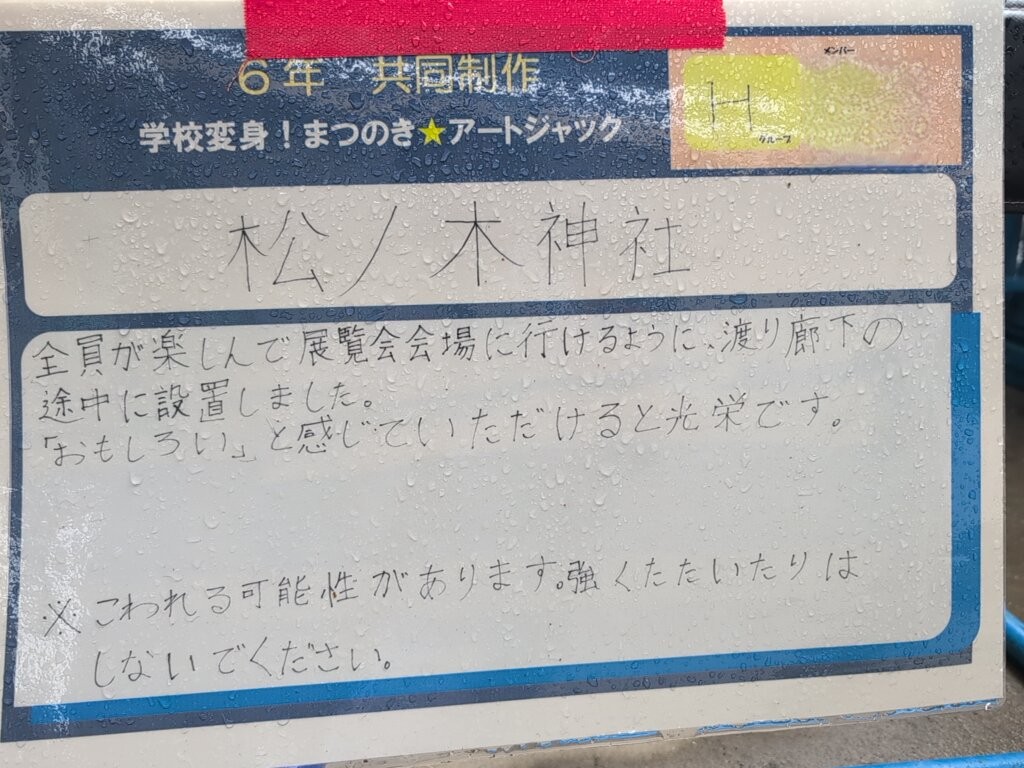 6年 共同制作
メンバー
H
グループ
学校変身!まつのき★アートジャック
松ノ木神社
全員が楽しんで展覧会会場に行けるように、渡り廊下の
途中に設置しました。
「おもしろい」と感じていただけると光栄です。
※こわれる可能性があります。強くたたいたりは
しないでください。